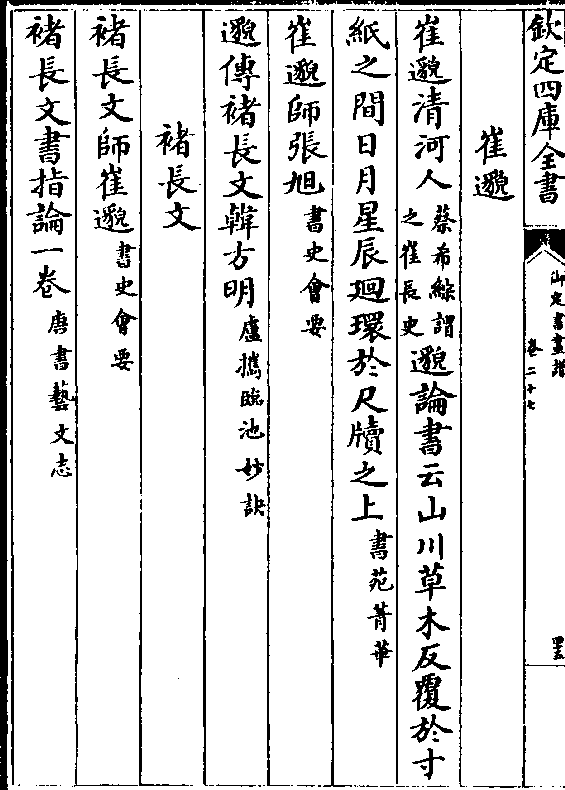 欽定四庫全書
御定書畫譜
卷二十七
崔邈
崔邈清河人蔡希綜謂之崔長史邈論書云山川草木反覆於寸
紙之間日月星辰迴環於尺牘之上書苑菁華
崔邈師張旭書史會要
邈傳褚長文韓方明盧攜臨池妙訣
褚長文
褚長文師崔邈書史會要
褚長文書指論一卷唐書藝文志